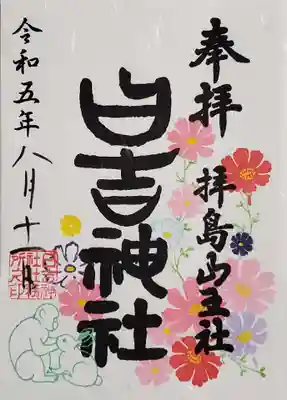 奉拝
拝島山王社
日吉神社
令和五年八月十一日